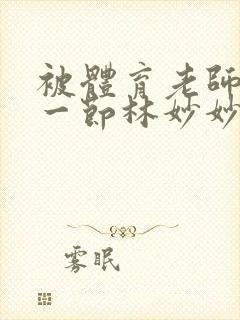 被體育老師
一節林妙妙
雾眠